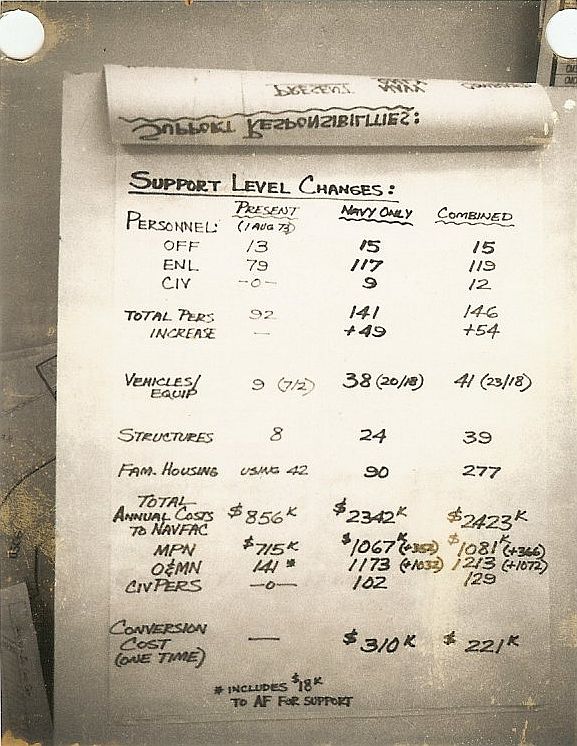 PRESENT NAVY ONLY COMBINED
SUPPORT RESPONSIBILITIES:
SUPPORT LEVEL CHANGES:
PRESENT NAVY ONLY COMBINED
PERSONNEL: (1 AUG 73)
OFF 13 15 15
ENL 79 117 119
CIV -0- 9 12
TOTAL PERS 92 141 146
INCREASE — +49 +54
VEHICLES/ 9 (7/2) 38 (20/18) 41 (23/18)
EQUIP
STRUCTURES 8 24 39
FAM. HOUSING USING 42 90 277
TOTAL
ANNUAL COSTS $856K $2342K $2423K
TO NAVFAC
MPN $715K $1067K (+352) $1081K (+366)
O&MN 141 * 1173 (+1032) 1213 (+1072)
CIVPERS -0- 102 129
CONVERSION
COST — $310K $221K
(ONE TIME)
* INCLUDES $18K
TO AF FOR SUPPORT